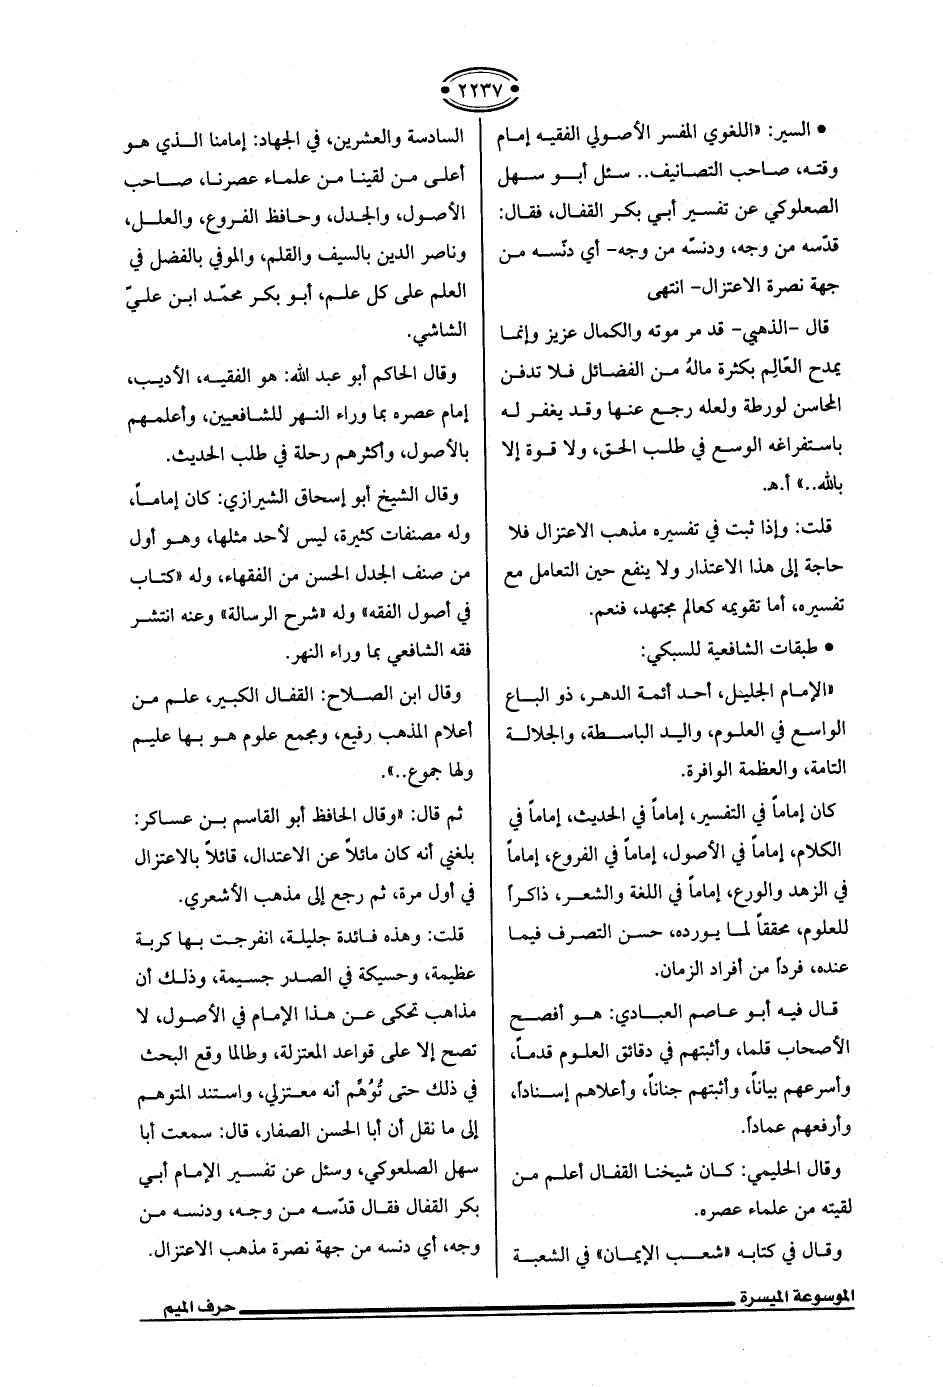 ٢٢٣٧
• السير: «اللغوي المفسر الأصولي الفقيه إمام
وقته، صاحب التصانيف.. سئل أبو سهل
الصعلوكي عن تفسير أبي بكر القفال، فقال:
قدّسه من وجه، ودنسّه من وجه- أي دنّسه من
جهة نصرة الاعتزال- انتهى
قال -الذهبي- قد مر موته والكمال عزيز وإنما
يمدح العّالِم بكثرة مالهُ من الفضائل فلا تدفن
المحاسن لورطة ولعله رجع عنها وقد يغفر له
باستفراغه الوسع في طلب الحق، ولا قوة إلا
بالله..» أ.هـ.
قلت: وإذا ثبت في تفسيره مذهب الاعتزال فلا
حاجة إلى هذا الاعتذار ولا ينفع حين التعامل مع
تفسيره، أما تقويمه كعالم مجتهد، فنعم.
• طبقات الشافعية للسبكي:
«الإمام الجليل، أحد أئمة الدهر، ذو الباع
الواسع في العلوم، واليد الباسطة، والجلالة
التامة، والعظمة الوافرة.
كان إماماً في التفسير، إماماً في الحديث، إماماً في
الكلام، إماماً في الأصول، إماماً في الفروع، إماماً
في الزهد والورع، إماماً في اللغة والشعر، ذاكراً
للعلوم، محققاً لما يورده، حسن التصرف فيما
عنده، فرداً من أفراد الزمان.
قال فيه أبو عاصم العبادي: هو أفصح
الأصحاب قلما، وأثبتهم في دقائق العلوم قدماً،
وأسرعهم بياناً، وأثبتهم جناناً، وأعلاهم إسناداً،
وأرفعهم عماداً.
وقال الحليمي: كان شيخنا القفال أعلم من
لقيته من علماء عصره.
وقال في كتابه «شعب الإيمان» في الشعبة
السادسة والعشرين، في الجهاد: إمامنا الذي هو
أعلى من لقينا من علماء عصرنا، صاحب
الأصول، والجدل، وحافظ الفروع، والعلل،
وناصر الدين بالسيف والقلم، والموفي بالفضل في
العلم على كل علم، أبو بكر محمّد ابن عليّ
الشاشي.
وقال الحاكم أبو عبد الله: هو الفقيه، الأديب،
إمام عصره بما وراء النهر للشافعيين، وأعلمهم
بالأصول، وأكثرهم رحلة في طلب الحديث.
وقال الشيخ أبو إسحاق الشيرازي: كان إماماً،
وله مصنفات كثيرة، ليس لأحد مثلها، وهو أول
من صنف الجدل الحسن من الفقهاء، وله «كتاب
في أصول الفقه» وله «شرح الرسالة» وعنه انتشر
فقه الشافعي بما وراء النهر.
وقال ابن الصلاح: القفال الكبير، علم من
أعلام المذهب رفيع، ومجمع علوم هو بها عليم
ولها جموع..».
ثم قال: «وقال الحافظ أبو القاسم بن عساكر:
بلغني أنه كان مائلاً عن الاعتدال، قائلاً بالاعتزال
في أول مرة، ثم رجع إلى مذهب الأشعري.
قلت: وهذه فائدة جليلة، انفرجت بها كربة
عظيمة، وحسيكة في الصدر جسيمة، وذلك أن
مذاهب تحكى عن هذا الإمام في الأصول، لا
تصح إلا على قواعد المعتزلة، وطالما وقع البحث
في ذلك حتى تُوُهِّم أنه معتزلي، واستند المتوهم
إلى ما نقل أن أبا الحسن الصفار، قال: سمعت أبا
سهل الصلعوكي، وسئل عن تفسير الإمام أبي
بكر القفال فقال قدّسه من وجه، ودنسه من
وجه، أي دنسه من جهة نصرة مذهب الاعتزال.
الموسوعة الميسرة
حرف الميم